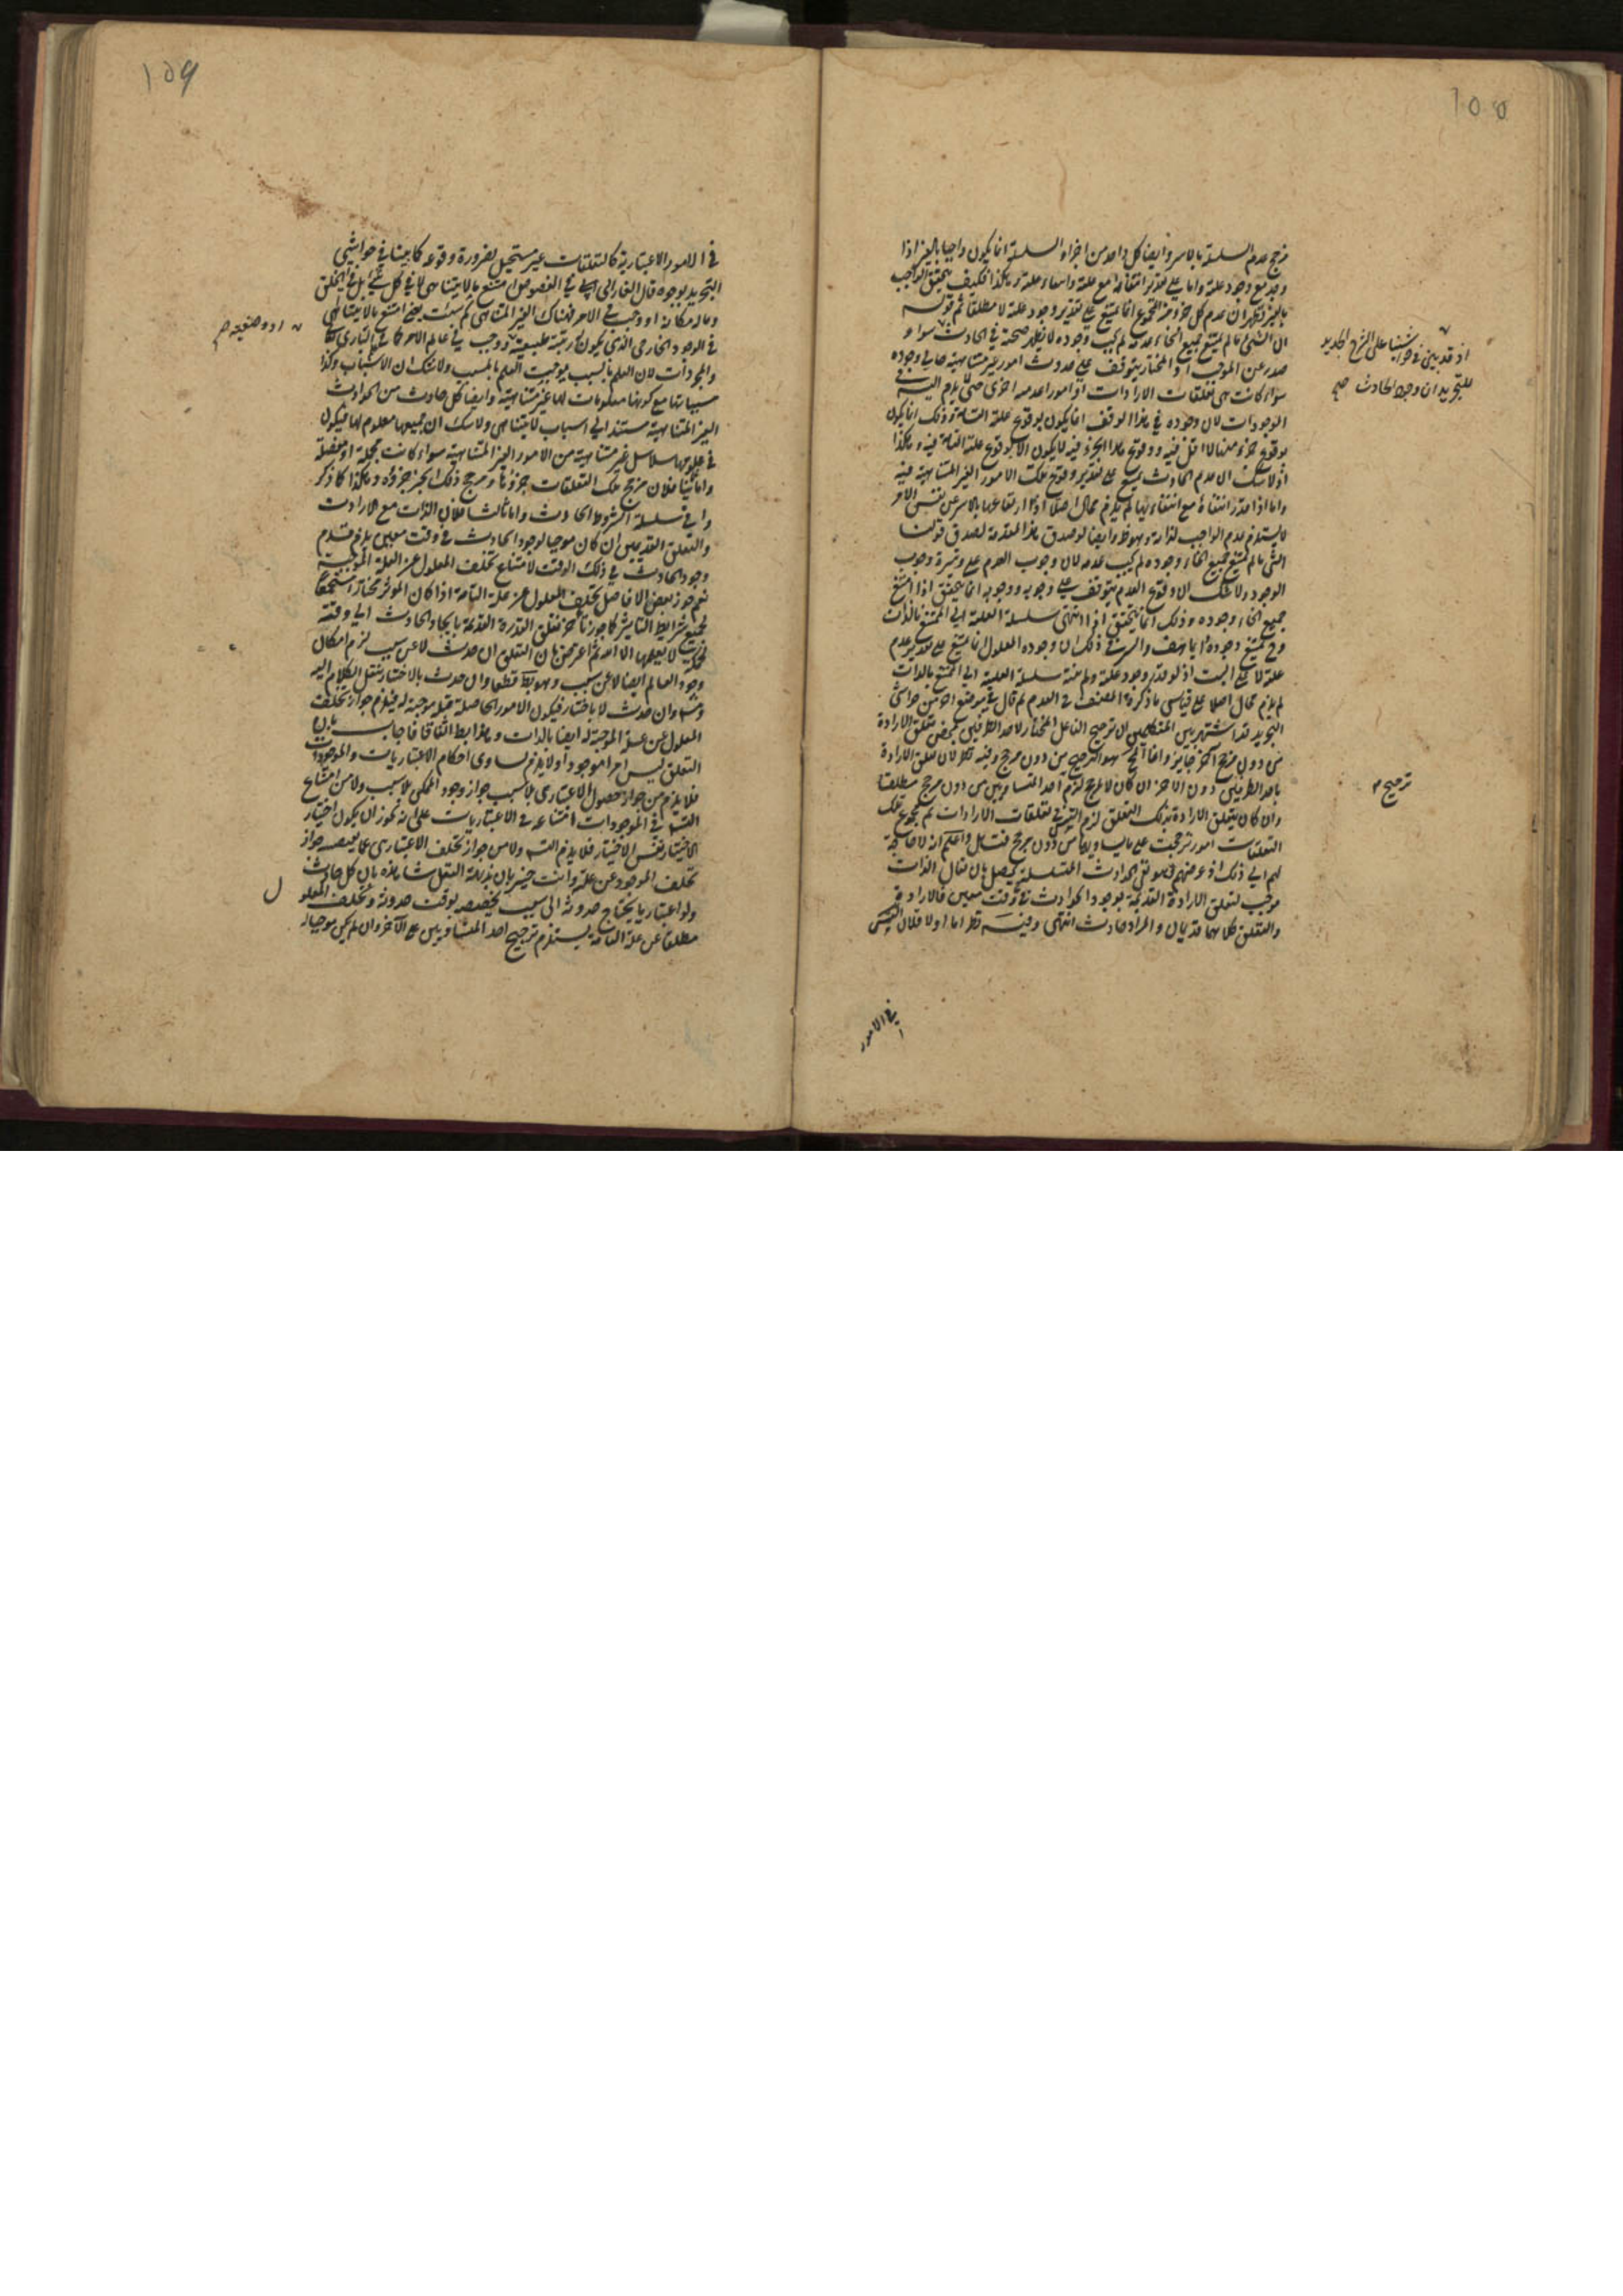 ١٥٥
مرجح عدم السلسلة بالاسر وايضا كل واحد من اجزاء السلسلة انما يكون واجبا بالغير اذا
وجد مع وجود علته واما على تقدير انتفائه مع علته وانتفاء علته وهكذا فكيف يتحقق الواجب
بالغير فظهر ان عدم كل جزء من المجموع انما يمتنع على تقدير وجود علته لا مطلقا ثم قوله
ان الشئ ما لم يمتنع جميع انحاء عدمه لم يجب وجوده لا يظهر صحته في الحادث سواء
صدر عن الموجب او المختار يتوقف على حدوث امور غير متناهية حال وجوده
سواء كانت هى تعلقات الارادات او امورا عدمية اخرى حتى يلزم التس في
الموجودات لان وجوده في هذا الوقت انما يكون بوقوع علته التامة وذلك انما يكون
بوقوع جزء منها لا اقل فيه ووقوع هذا الجزء فيه لا يكون الا بوقوع علته التامة فيه وهكذا
اذ لا شك ان عدم الحادث يمتنع على تقدير وقوع تلك الامور الغير المتناهية فيه
واما اذا قدر انتفاءه مع انتفائها لم يلزم محال اصلا اذ ارتفاعها بالاسر عن نفس الامر
لا يستلزم عدم الواجب لذاته وهو ظ وايضا لو صدق هذا المقدمة لصدق قولنا
الشئ ما لم يمتنع جميع انحاء وجوده لم يجب عدمه لان وجوب العدم على وتيرة وجوب
الوجود ولا شك ان وقوع العدم يتوقف على وجوبه ووجوبه انما يتحقق اذا امتنع
جميع انحاء وجوده وذلك انما يتحقق اذا انتهى سلسلة العلة الى الممتنع بالذات
وح يمتنع وجوده هف والسر في ذلك ان وجود المعلول انما يمتنع على تقدير عدم
علته لا مع البت اذ لو قدر وجود علته ولم ينته سلسلة العلية الى الممتنع بالذات
لم يلزم محال اصلا على قياس ما ذكره المصنف في العدم ثم قال في موضع آخر من حواشى
التجريد قد اشتهر بين المتكلمين ان ترجيح الفاعل المختار لاحد الطرفين بمحض تعلق الارادة
من دون مرجح آخر جايز وانما المحال هو الترجيح من دون مرجح وفيه نظر لان تعلق الارادة
باحد الطرفين دون الآخر ان كان لا لمرجح لزم احد المتساويين من دون مرجح مطلقا
وان كان بتعلق الارادة بذلك التعلق لزم التس في تعلقات الارادات ثم مجموع تلك
التعلقات امور ترجحت على ما يساويها من دون مرجح فتأمل واعلم انه لا حاجة
لهم الى ذلك اذ غرضهم في نفى الحوادث المتسلسلة يحصل بان يقال الذات
موجب لتعلق الارادة القديمة بوجود الحوادث في وقت معين فالارادة
والتعلق كلاهما قديمان والمراد حادث انتهى وفيه نظر اما اولا فلان التس
في الامور
اذ قد بينى في حواشينا على الشرح الجديد
للتجريد ان وجود الحادث صح
ترجيح
١٥٦
في الامور الاعتبارية كالتعلقات غير مستحيل لضرورة وقوعه كما بينا في حواشى
التجريد بوجوه قال الفارابى في الفصوص امتنع ما لا يتناهى لا في كل شئ بل في الخلق
وما له مكانة ووجب في الامر فهناك الغير المتناهى كم شئت يعنى امتنع ما لا يتناهى
في الوجود الخارجى الذى يكون له رتبة طبيعية ووجب في عالم الامر كما في البارى تعالى
والمجردات لان العلم بالسبب يوجب العلم بالمسبب ولا شك ان الاسباب وكذا
مسبباتها مع كونها معلومات لها غير متناهية وايضا كل حادث من الحوادث
الغير المتناهية مستند الى اسباب لا يتناهى ولا شك ان جميعها معلوم لها فيكون
في علومها سلاسل غير متناهية من الامور الغير المتناهية سواء كانت مجملة او مفصلة
واما ثانيا فلان مرجح تلك التعلقات جزؤها ومرجح ذلك الجزء جزؤه وهكذا كما ذكر
في سلسلة الشروط الحادث واما ثالثا فلان الذات مع الارادات
والتعلق القديمين ان كان موجبا لوجود الحادث في وقت معين يلزم قدم
وجود الحادث في ذلك الوقت لامتناع تخلف المعلول عن العلة الموجبة
نعم جوز بعض الافاضل تخلف المعلول عن علته التامة اذا كان المؤثر مختارا مستجمعا
لجميع شرايط التاثير كما جوزنا تأخر تعلق القدرة القديمة بايجاد الحادث الى وقته
لحكمة لا يعلمها الا الله ثم اعترض بان التعلق ان حدث لا عن سبب لزم امكان
وجود العالم ايضا لا عن سبب وهو بط قطعا وان حدث بالاختيار ننقل الكلام اليه
وتس وان حدث لا باختيار فيكون الامور الحاصلة قبله موجبة له فيلزم جواز تخلف
المعلول عن علته الموجبة له ايضا بالذات وهذا بط اتفاقا فاجاب بان
التعلق ليس امرا موجودا ولا يلزم تساوى احكام الاعتباريات والموجودات
فلا يلزم من جواز حصول الاعتبارى بلا سبب جواز وجود الممكن بلا سبب ولا من امتناع
التس في الموجودات امتناعه في الاعتباريات على انه يجوز ان يكون اختيار
الاختيار نفس الاختيار فلا يلزم التس ولا من جواز تخلف الاعتبارى عما يقتضيه جواز
تخلف الموجود عن علته وانت خبير بان بديهة العقل شاهدة بان كل حادث
ولو اعتباريا يحتاج حدوثه الى سبب يخصصه بوقت حدوثه وتخلف المعلول
مطلقا عن علته التامة يستلزم ترجيح احد المتساويين على الآخر وان لم يكن موجبا له